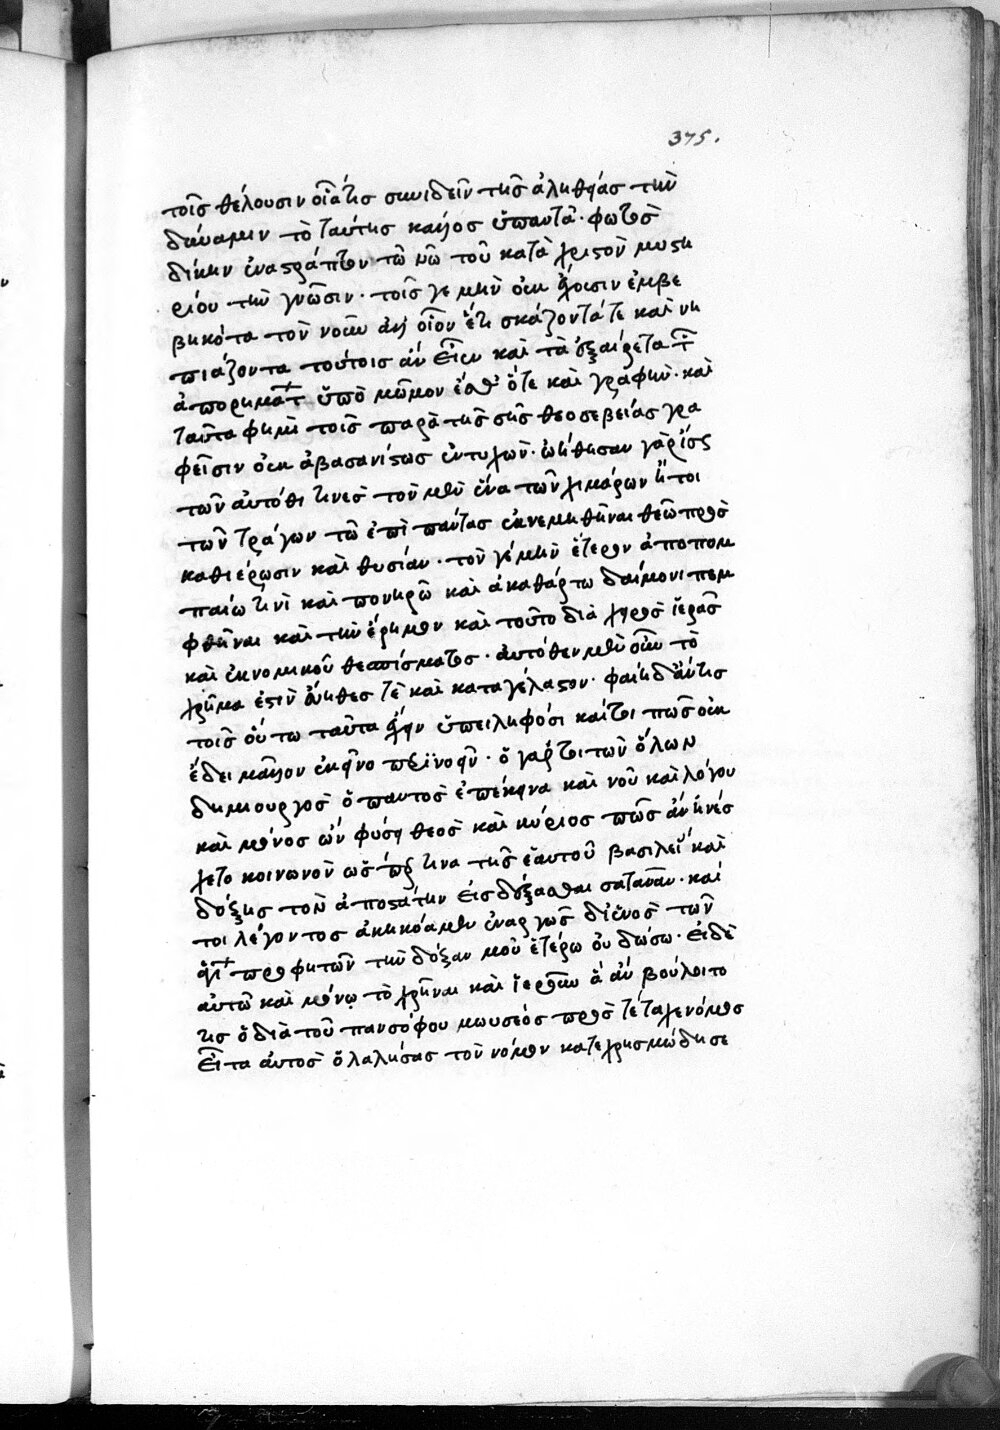 375.
τοῖς θέλουσιν οἷά τις συνιδεῖν τῆς ἀληθείας τὴν
δύναμιν τὸ ταύτης κάλλος ὑπαντᾶ· φωτὸς
δίκην ἐναστράπτον τῶ νῶ τοῦ κατὰ χριστὸν μυστη
ρίου τὴν γνῶσιν· τοῖς γε μὴν οὐκ ἔχουσιν ἐμβε
βηκότα τὸν νοῦν ἀλλ' οἷον ἔτι σκάζοντά τε καὶ νη
πιάζοντα τούτοις ἂν εἶεν καὶ τὰ ἐξαίρετα τῶν
ἀπορημάτων ὑπὸ μῶμον ἔσθ' ὅτε καὶ γραφὴν· καὶ
ταῦτα φημὶ τοῖς παρὰ τῆς σῆς θεοσεβείας γρα
φεῖσιν οὐκ ἀβασανίστως ἐντυχὼν· ὠήθησαν γὰρ ἴσως
τῶν αὐτόθι τινες τὸν μὲν ἕνα τῶν χιμάρων ἤτοι
τῶν τράγων τῶ ἐπὶ πάντας ἐκνεμηθῆναι θεῶ πρὸς
καθιέρωσιν καὶ θυσίαν· τὸν γε μὴν ἕτερον ἀποπομ
παίω τινὶ καὶ πονηρῶ καὶ ἀκαθάρτω δαίμονι πεμ
φθῆναι κατὰ τὴν ἔρημον καὶ τοῦτο διὰ χειρὸς ἱερᾶς
καὶ ἐκ νομικοῦ θεσπίσματος· αὐτόθεν μὲν οὖν τὸ
χρῆμα ἐστὶν εὔηθές τε καὶ καταγέλαστον· φαίη δ' ἄν τις
τοῖς οὕτω ταῦτα ἔχειν ὑπειληφόσι καίτοι πῶς οὐκ
ἔδει μᾶλλον ἐκεῖνο περινοεῖν· ὁ γάρ τοι τῶν ὅλων
δημιουργὸς ὁ παντὸς ἐπέκεινα καὶ νοῦ καὶ λόγου
καὶ μόνος ὢν φύσει θεὸς καὶ κύριος πῶς ἂν ἠνέσ
χετο κοινωνὸν ὥσπερ τινα τῆς ἑαυτοῦ βασιλείας καὶ
δόξης τὸν ἀποστάτην εἰσδέξασθαι σατανᾶν· καί
τοι λέγοντος ἀκηκόαμεν ἐναργῶς δι' ἑνὸς τῶν
ἁγίων προφητῶν τὴν δόξαν μου ἑτέρω οὐ δώσω· εἰ δὲ
αὐτῶ καὶ μόνῳ τὸ χρῆναι καὶ ἱεροῦν ἃ ἂν βούλοιτο
τις ὁ διὰ τοῦ πανσόφου μωυσέος πρὸς τέ τα γενόμενος
εἶτα αὐτὸς ὁ λαλήσας τὸν νόμον κατεχρησμώδησε